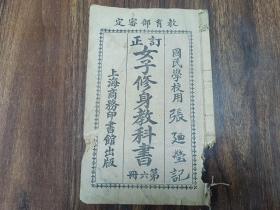 教育部審定
國民學校用
張廷瑩記
訂正
女子修身教科書
第六冊
上海商務印書館出版